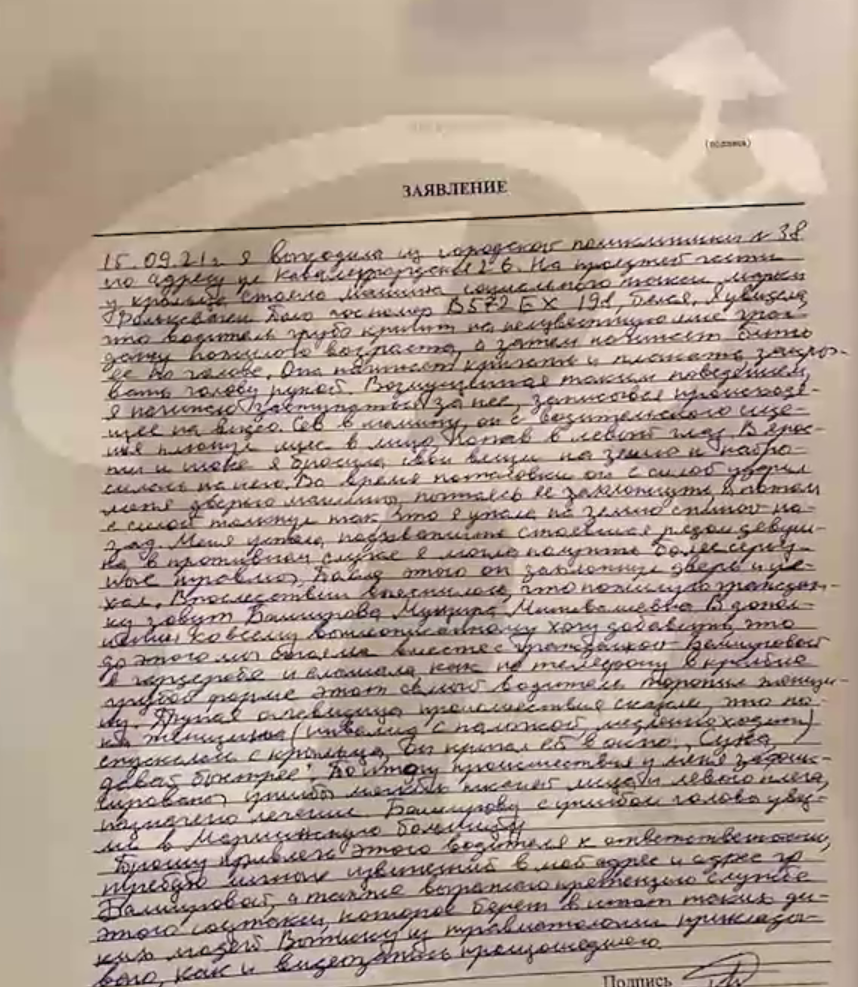 (подпись)
ЗАЯВЛЕНИЕ
15.09.21г. я выходила из городской поликлиники № 38
по адресу ул Кавалергардская 26. На проезжей части
у крыльца стояла машина социального такси марки
Фольксваген, госномер В572ЕХ 198, белая. Я увидела,
что водитель грубо кричит на неизвестную мне граж-
данку пожилого возраста, а затем начинает бить
ее по голове. Она начинает кричать и плакать, закры-
вать голову рукой. Возмущенная таким поведением,
я начинаю заступаться за нее, записывая происходя-
щее на видео. Сев в машину, он с водительского сиде-
нья плюнул мне в лицо, попав в левый глаз. В ярос-
ти и шоке я бросила свои вещи на землю и набро-
силась на него. Во время потасовки он с силой ударил
меня дверью машины, пытаясь ее захлопнуть, а потом
с силой толкнул так, что я упала на землю спиной на-
зад. Меня успела подхватить стоявшая рядом девуш-
ка, в противном случае я могла получить более серьез-
ные травмы. После этого он захлопнул дверь и уе-
хал. Впоследствии выяснилось, что пожилую граждан-
ку зовут Башировa В допол-
нение ко всему вышеописанному хочу добавить, что
до этого мы стояли вместе с гражданкой Башировой
в гардеробе и слышала, как по телефону в крайне
грубой форме этот самый водитель торопил женщи-
ну. Другая очевидица происшествия сказала, что по-
ка женщина (инвалид с палочкой, медленно ходит)
спускалась с крыльца, он кричал ей в окно: "Сука,
давай быстрее". По итогу происшествия у меня зафик-
сированы ушибы мягких тканей лица и левого плеча,
назначено лечение. Баширову с ушибом головы увез-
ли в Мариинскую больницу.
Прошу привлечь этого водителя к ответственности,
требую личных извинений в мой адрес и адрес гр
Башировой, а также выражаю претензию службе
этого соцтакси, которое берет в штат таких ди-
ких людей. Выписку из травматологии прикладываю,
как и видеозапись произошедшего.
Подпись